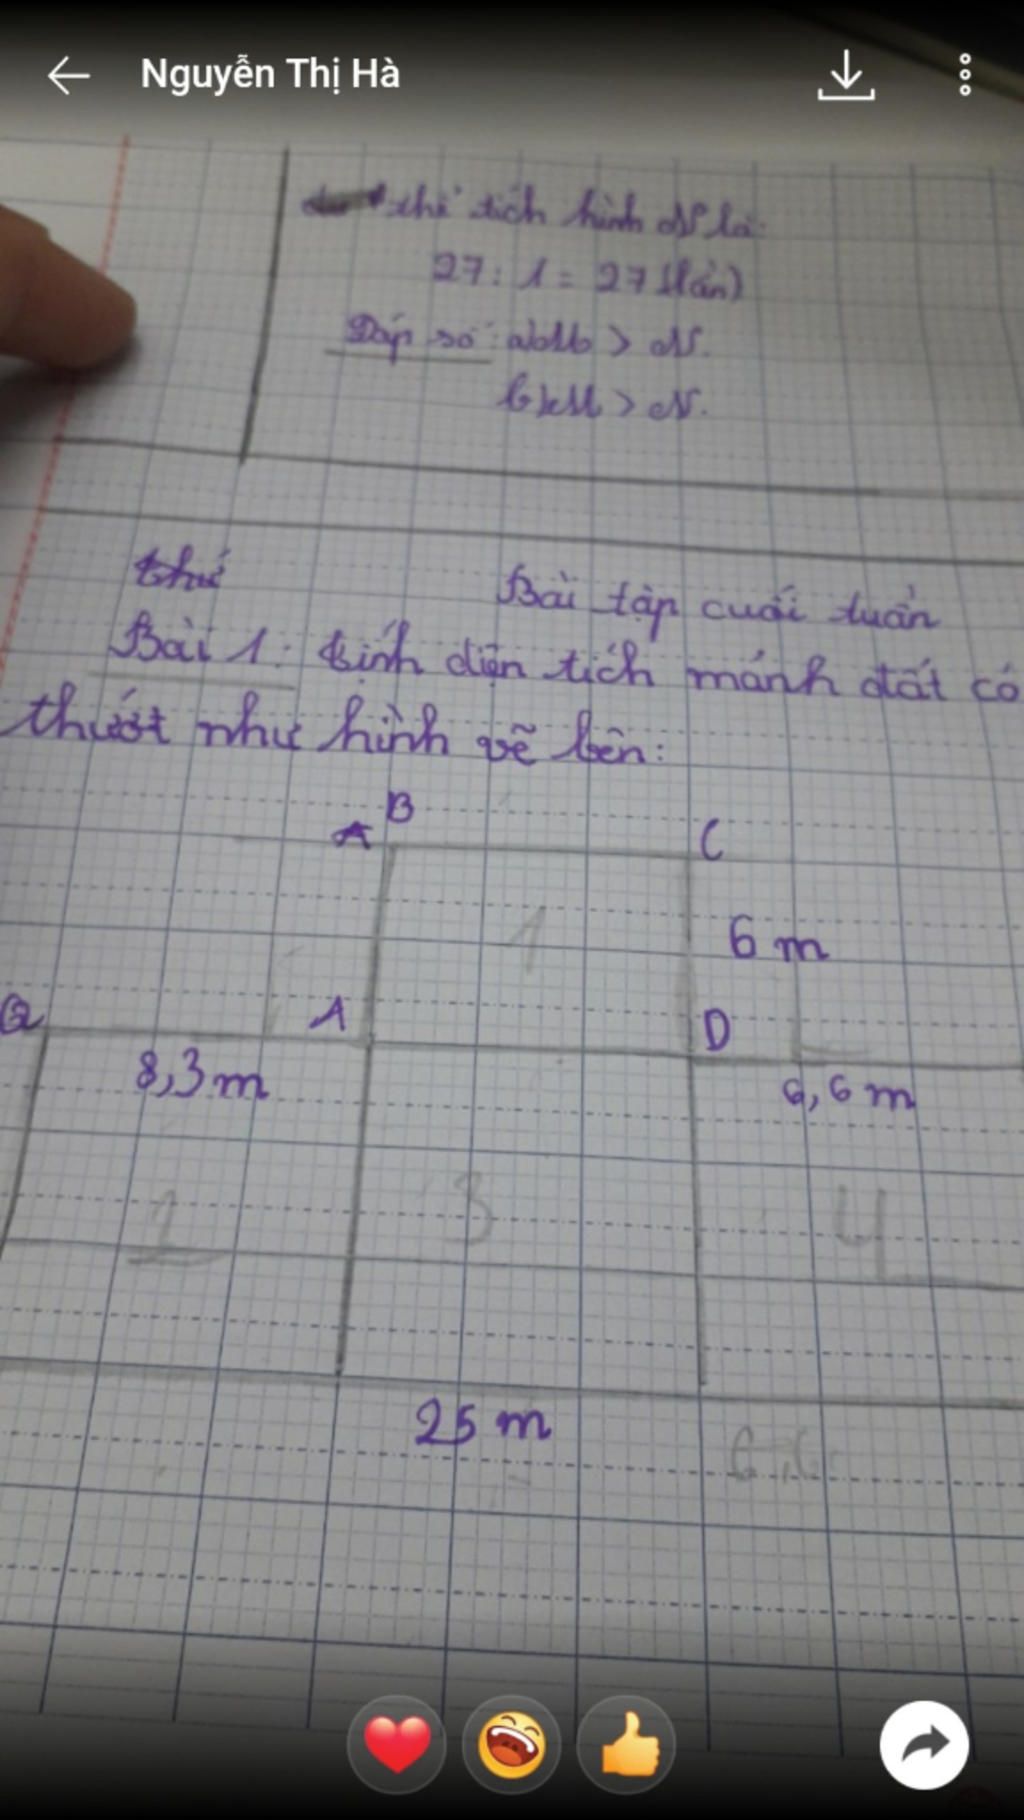 Nguyễn Thị Hà
thể tích hình N là:
27 : 1 = 27 (lần)
Đáp số: a) M > N.
b) M > N.
thứ
Bài tập cuối tuần
Bài 1: tính diện tích mảnh đất có
thướt như hình vẽ bên:
B
A
C
1
6 m
Q
A
D
8,3 m
6,6 m
2
3
4
25 m
6,6